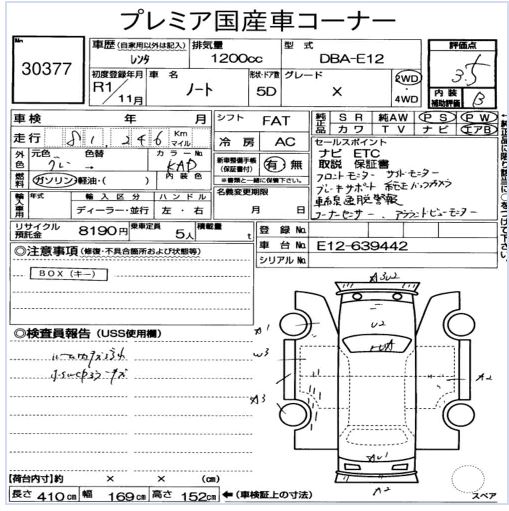 プレミア国産車コーナー
No.
30377
車歴 (自家用以外は記入)
レンタ
排気量
1200cc
型式
DBA-E12
評価点
3.5
初度登録年月
R1/11月
車名
ノート
形状・ドア数
5D
グレード
X
2WD
・
4WD
内装
補助評価
B
車検 年 月
走行 81,246 Km マイル
シフト FAT
冷房 AC
純正品 SR 純AW PS PW
カワ TV ナビ エアB
外色 元色 色替 カラーNo.
グレー → KAD
燃料 ガソリン・軽油・( ) 内装色
新車整備手帳(保証書付) 有・無
※書類と一緒に保管下さい。
セールスポイント
ナビ ETC
取説 保証書
フロントモーター サイドモーター
ブレーキサポート 純正バックカメラ
車線逸脱警報
コーナーセンサー アラウンドビューモーター
輸入車 年式 輸入区分 ハンドル
ディーラー・並行 左・右
名義変更期限
月 日
リサイクル預託金 8190円
乗車定員 5人
積載量 t
登録No.
車台No. E12-639442
シリアルNo.
◎注意事項 (修復・不具合個所および状態等)
BOX(キー)
◎検査員報告 (USS使用欄)
A3U2
A1
U2
W3
A3
A2
AU1
A2
スペア
【荷台内寸】約 × × (cm)
長さ 410cm 幅 169cm 高さ 152cm ←(車検証上の寸法)